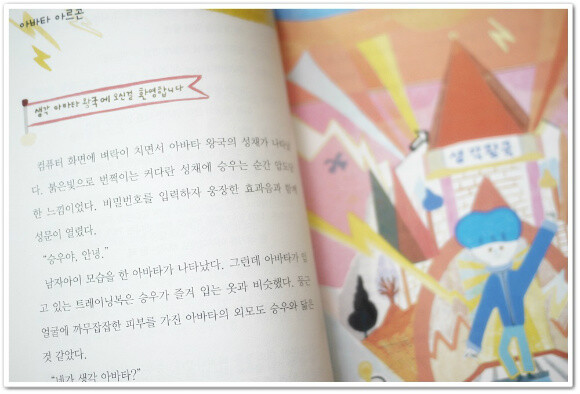 아바타 아르곤
생각 아바타 왕국에 오신걸 환영합니다
컴퓨터 화면에 벼락이 치면서 아바타 왕국의 성채가
다. 붉은빛으로 번쩍이는 커다란 성채에 승우는 순간
한 느낌이었다. 비밀번호를 입력하자 웅장한 효과음과 함께
성문이 열렸다.
“승우야, 안녕.”
남자아이 모습을 한 아바타가 나타났다. 그런데 아바타가 입
고 있는 트레이닝복은 승우가 즐겨 입는 옷과 비슷했다. 둥근
얼굴에 까무잡잡한 피부를 가진 아바타의 외모도 승우와 닮은
것 같았다.
“네가 생각 아바타?”
생각왕국